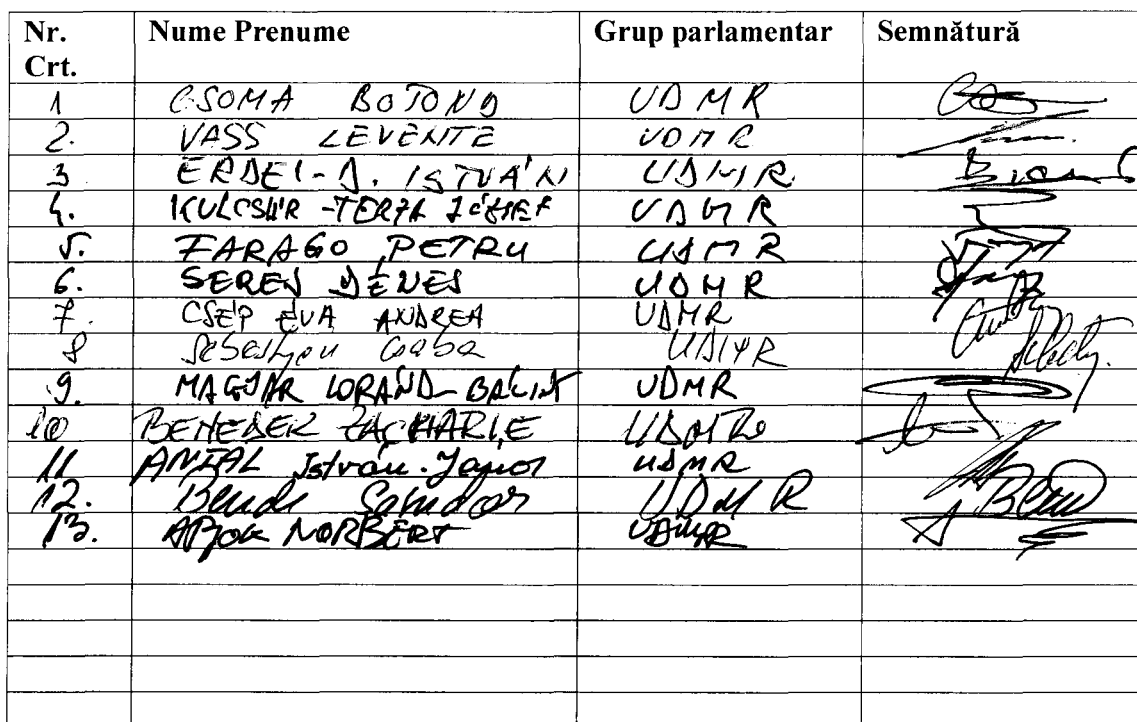 Nr. Crt. Nume Prenume Grup parlamentar Semnătură
1 CSOMA BOTOND UDMR
2. VASS LEVENTE UDMR
3 ERDEI-D. ISTVÁN UDMR
4. KULCSÁR-TERZA JÓZSEF UDMR
5. FARAGO PETRU UDMR
6. SERES DÉNES UDMR
7. CSÉP ÉVA ANDREA UDMR
8 Sebestyen Csaba UDMR
9. MAGYAR LORAND-BALINT UDMR
10 BENEDEK ZACHARIE UDMR
11 ANTAL István-János UDMR
12. Bende Sandor UDMR
13. APJOK NORBERT UDMR